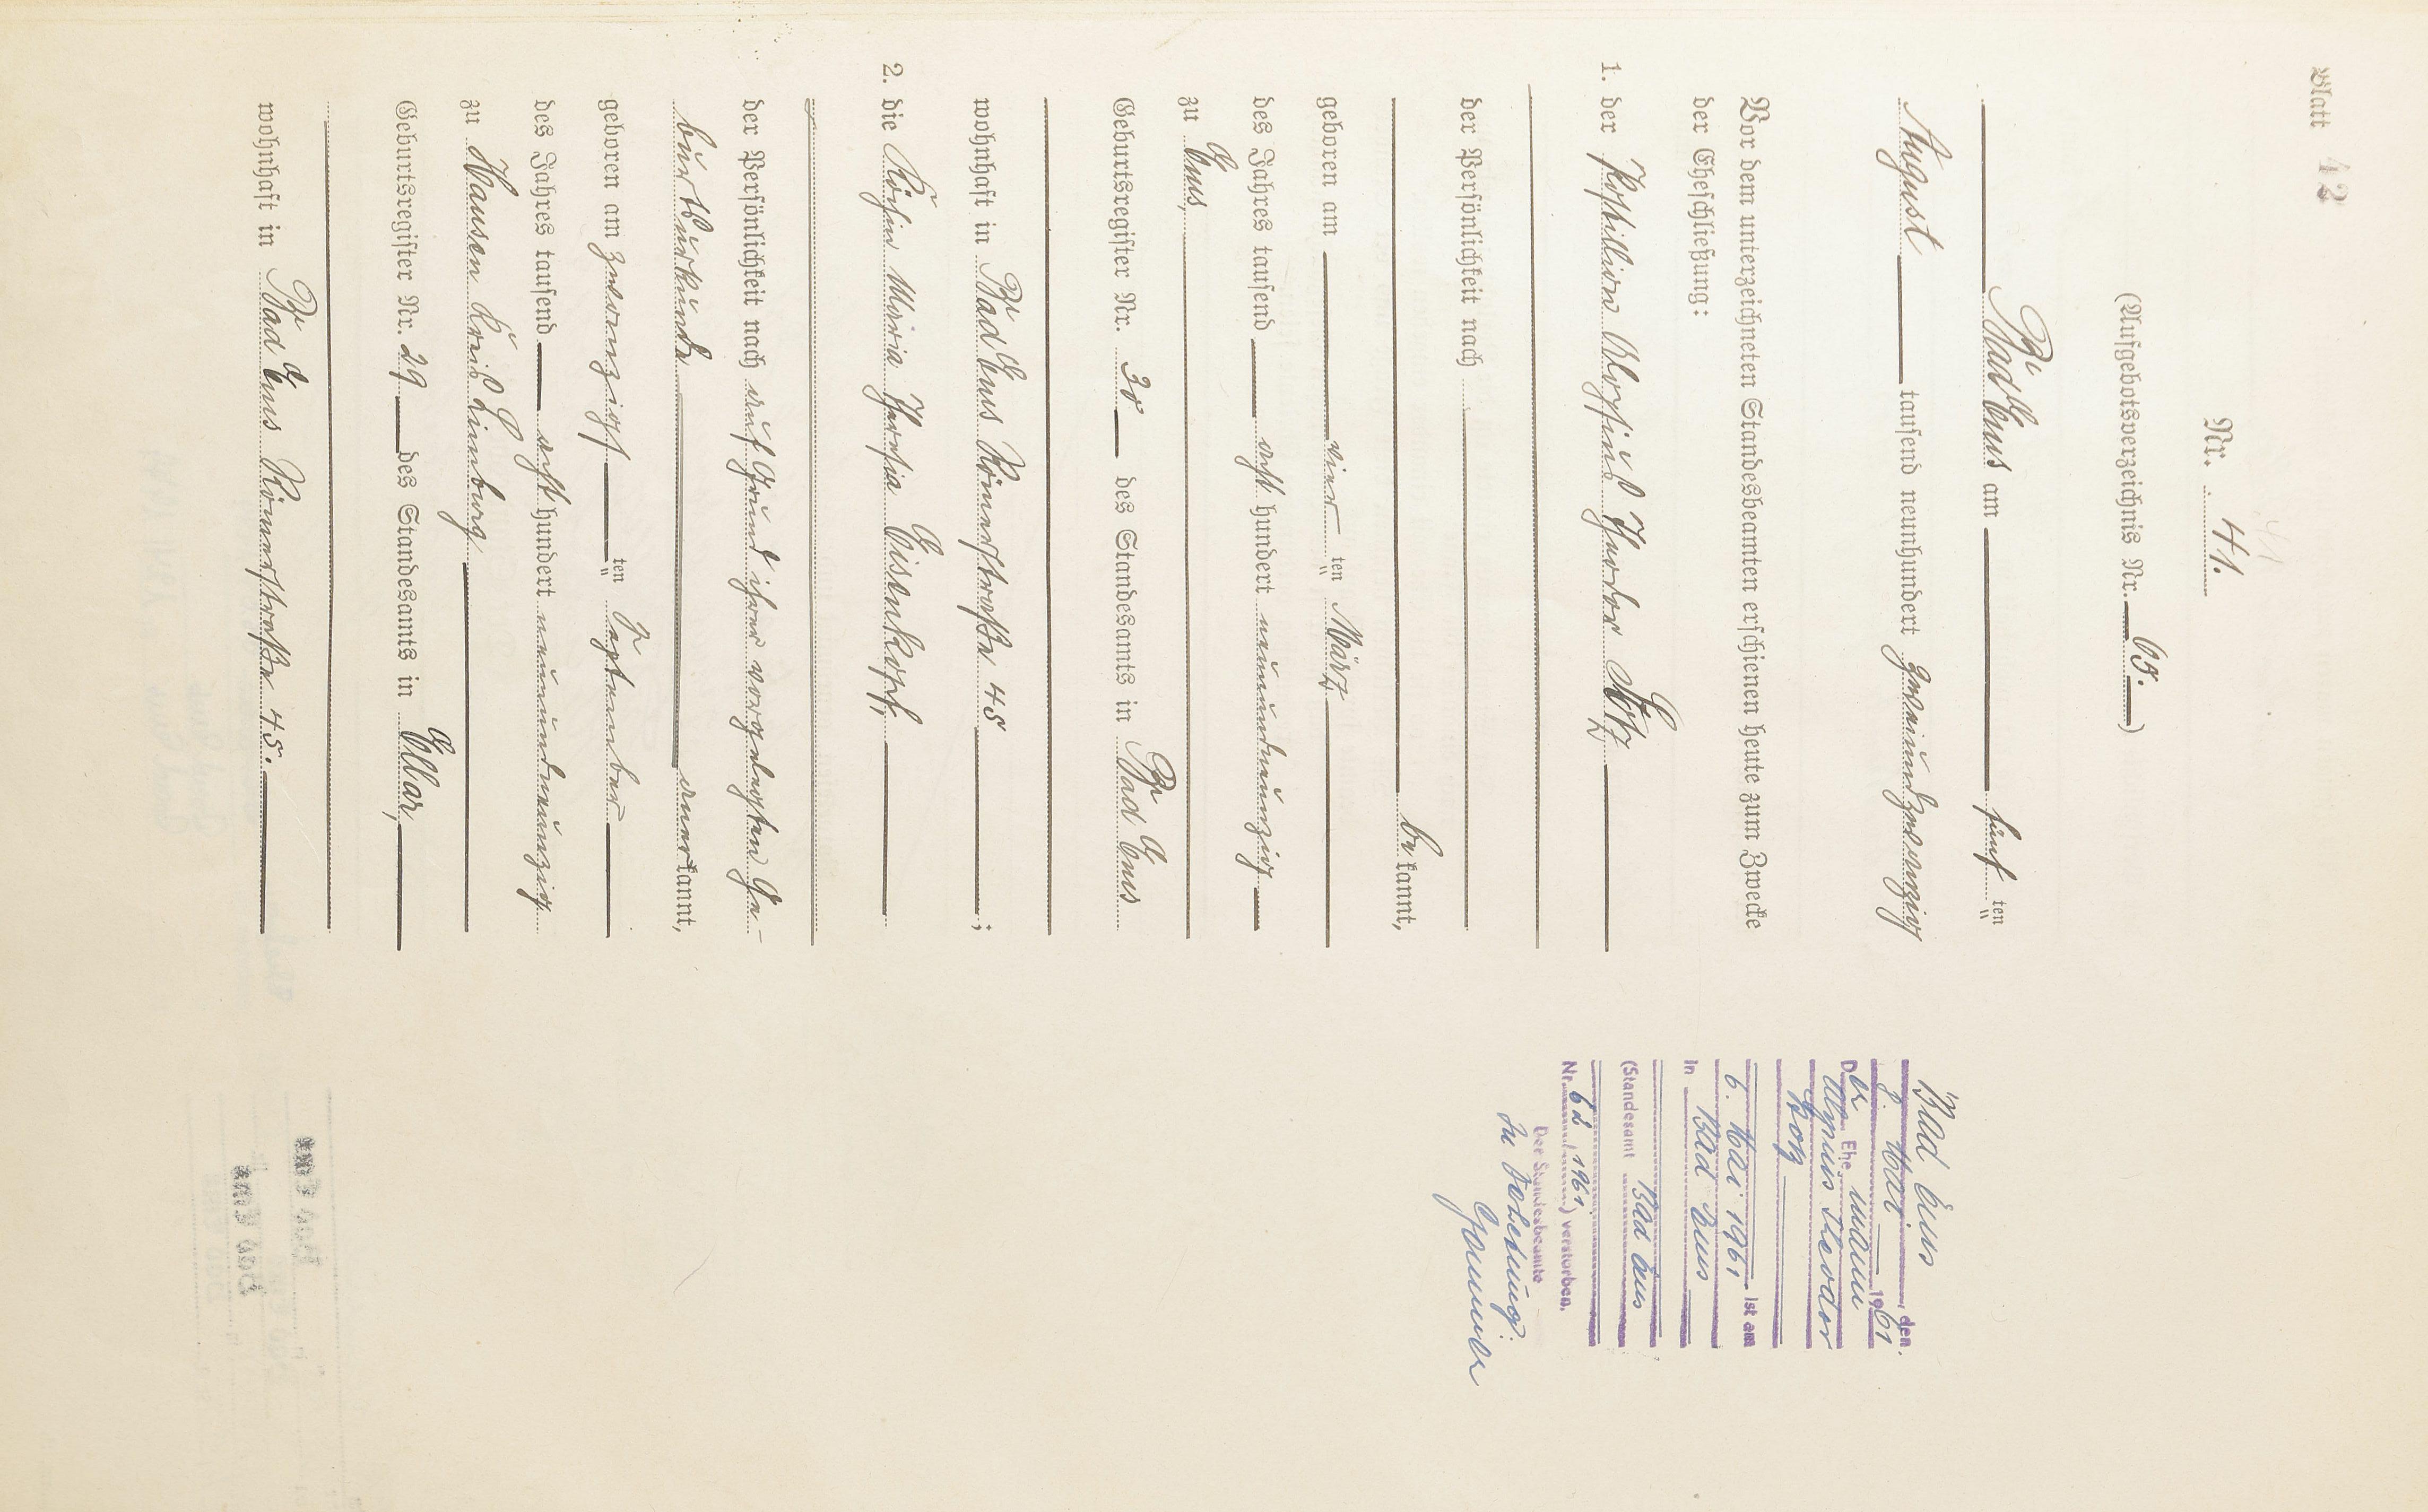 Blatt 42
Nr. 41.
41
(Aufgebotsverzeichnis Nr. 65.)
Bad Ems am fünf ten
August tausend neunhundert zweiundzwanzig
Vor dem unterzeichneten Standesbeamten erschienen heute zum Zwecke
der Eheschließung:
1. der Postillion Aloysius Theodor
der Persönlichkeit nach
be kannt,
geboren am vier ten März
des Jahres tausend acht hundert neunundneunzig
zu Ems,
Geburtsregister Nr. 30 des Standesamts in Bad Ems
wohnhaft in Bad Ems Römerstraße 45 ;
2. die Köchin Maria Theresia Eisenkopf,
der Persönlichkeit nach auf Grund ihrer vorgelegten Ge-
burtsurkunde anerkannt,
geboren am zwanzigst ten September
des Jahres tausend acht hundert neunundneunzig
zu Hausen Kreis Limburg
Geburtsregister Nr. 29 des Standesamts in Ellar,
wohnhaft in Bad Ems Römerstraße 45.
Bad Ems den
8. Mai 1961
Der Ehe mann
Theodor
6. Mai 1961 ist am
In Bad Ems
(Standesamt Bad Ems
Nr. 62, 1961) verstorben.
Der Standesbeamte
In Vertretung: